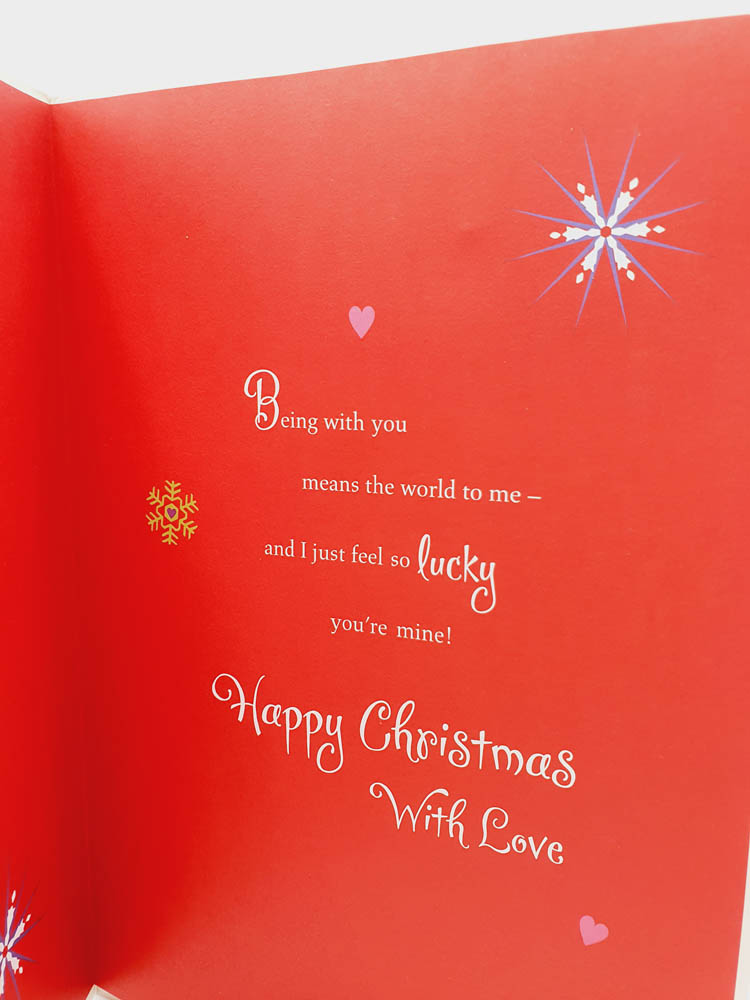 Being with you
means the world to me –
and I just feel so lucky
you're mine!
Happy Christmas
With Love